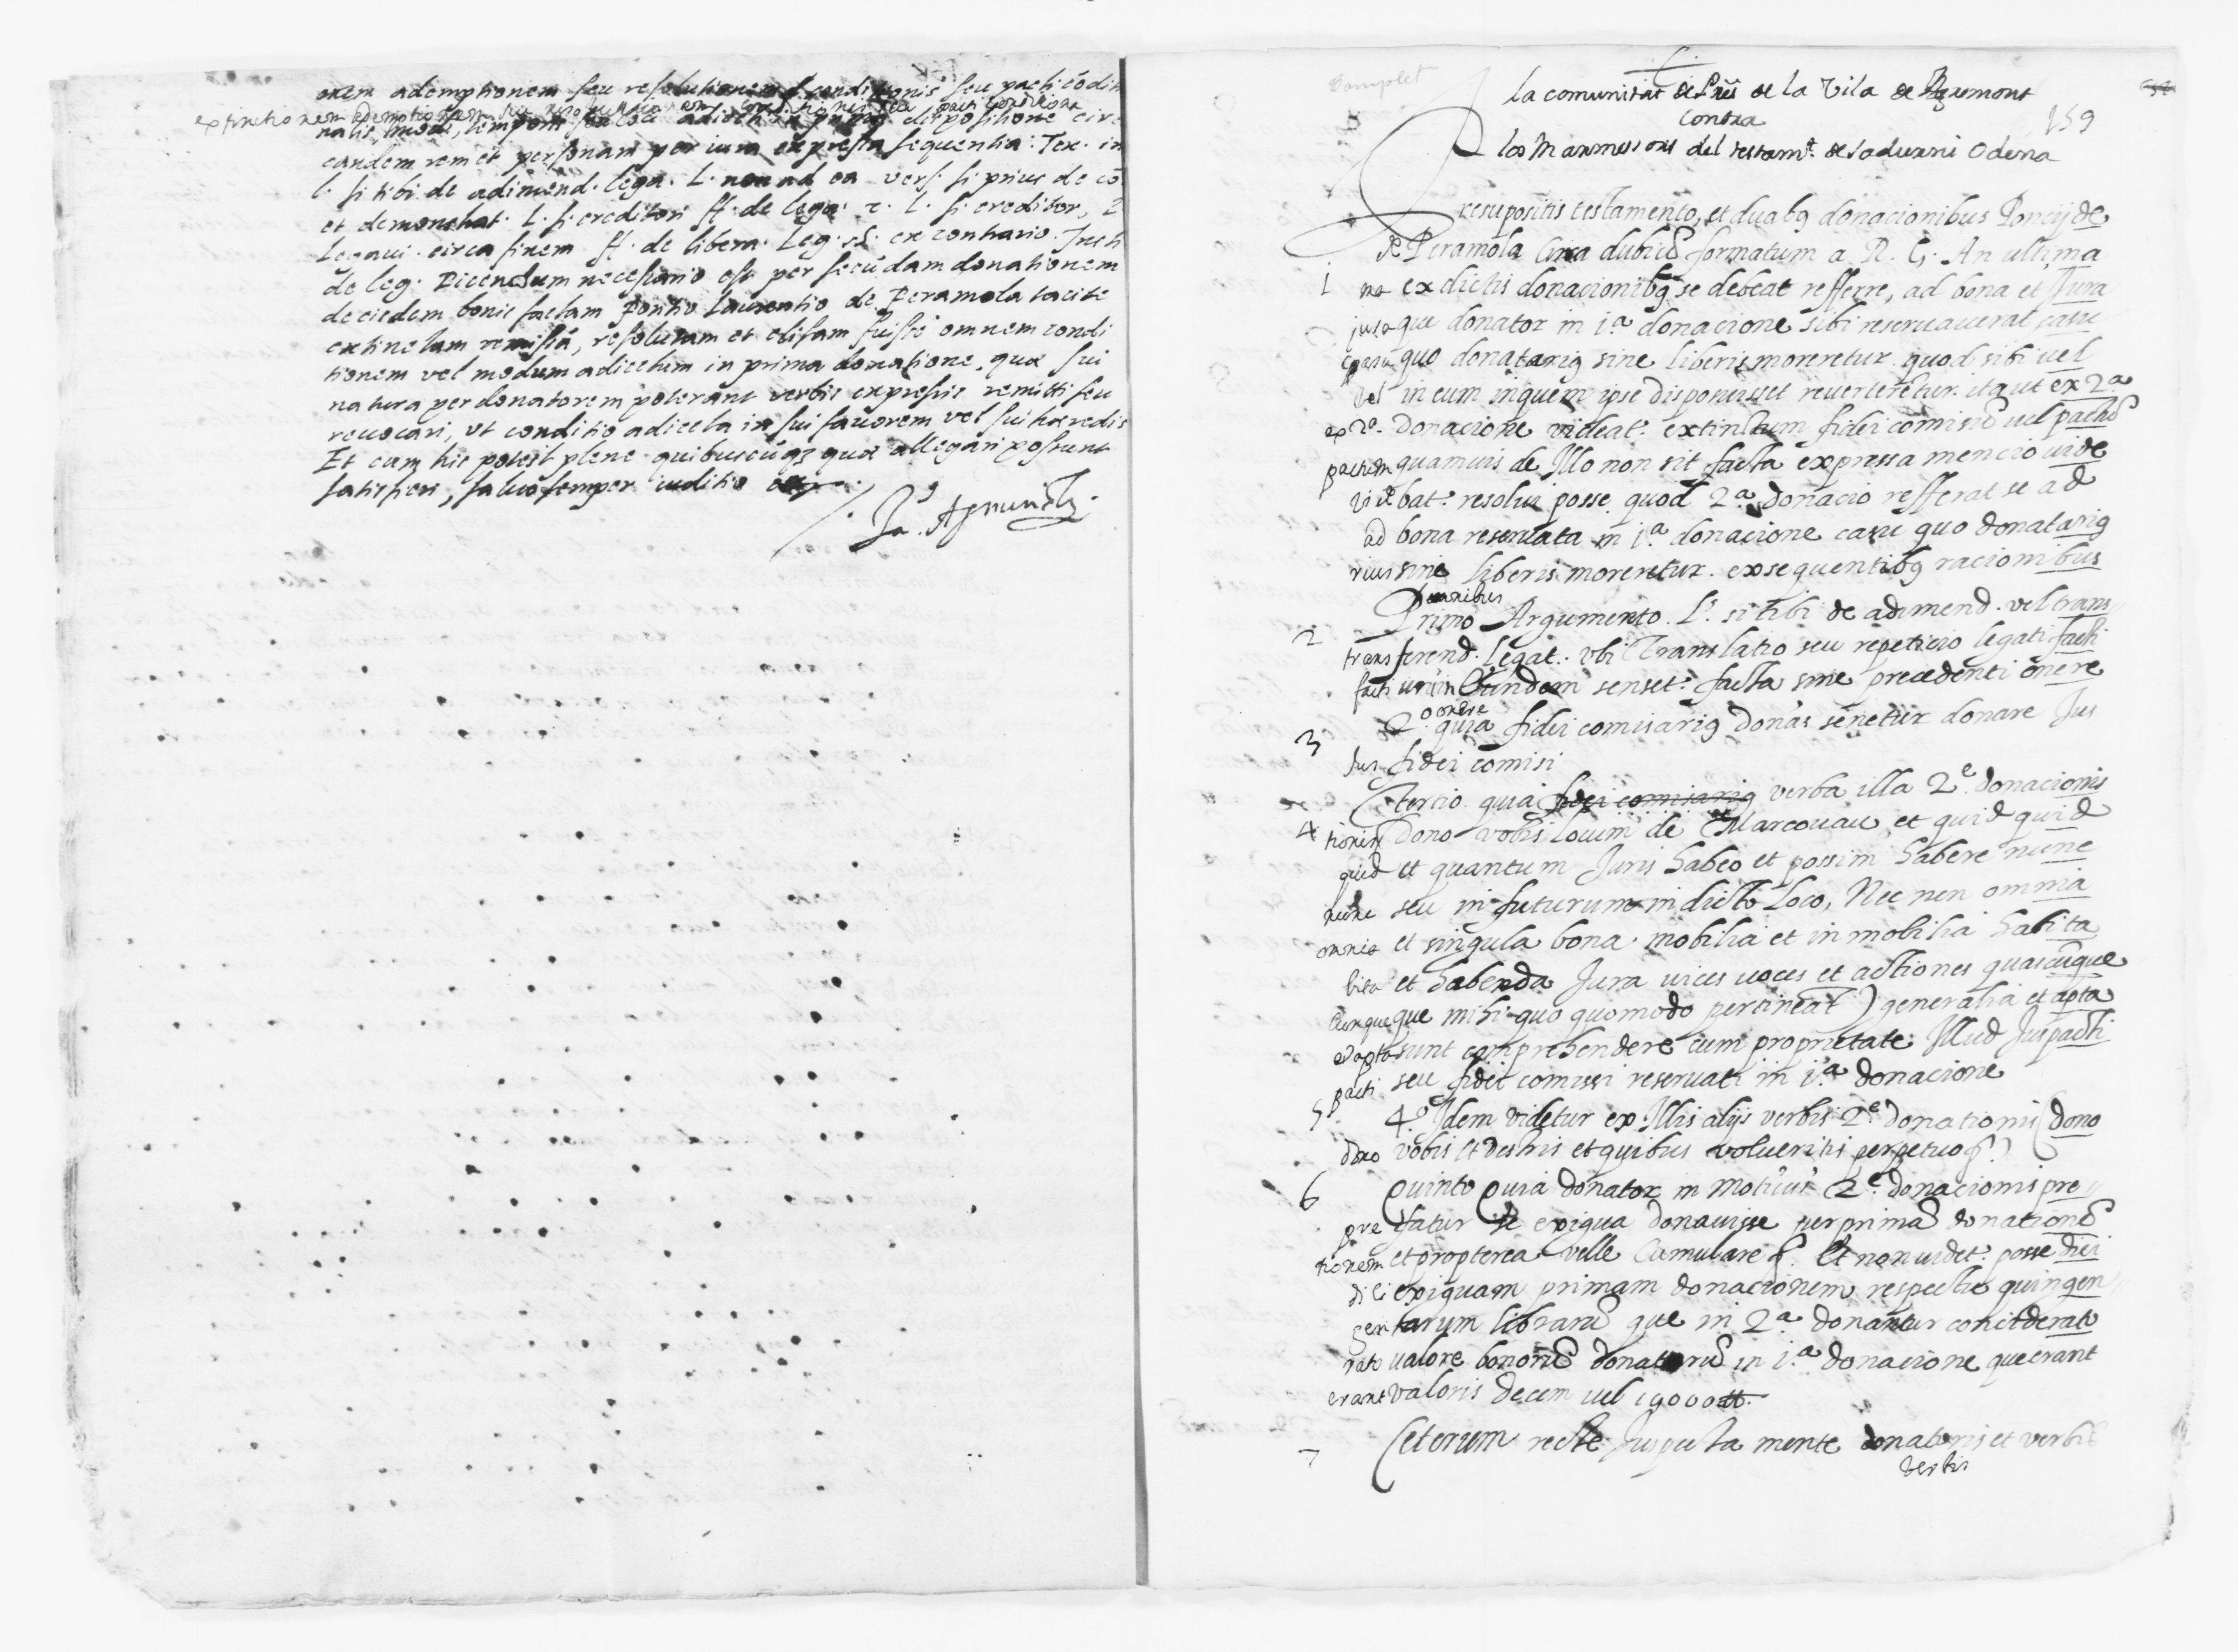 onem ademptionem seu resolutionem conditionis seu pacti condit
extinctionem ademptionem seu resolutionem conditionis seu pacti conditio
nalis, modi, temporis seu loci adiecti in prima dispositione circa
eandem rem et personam per iura expressa sequentia. Tex. in
l. si tibi de adimend. lega. L. non ad ea vers. si prius de co
et demonstrat. L. si creditori ff. de lega. 2. L. si creditor, 2
Legaui. circa finem ff. de libera. Leg. et ex contrario. Insti
de leg. Dicendum necessario est per secūdam donationem
de eisdem bonis factam Pontio Laurentio de Peramola tacite
extinctam remissā, resolutam et elisam fuisse omnem condi
tionem vel modum adiectum in prima donatione, quæ sui
natura per donatorem poterant verbis expressis remitti seu
reuocari, vt conditio adiecta in sui fauorem vel sui hæredis
Et cum his potest plene quibuscūq; quæ allegari possunt
satisfieri, saluo semper iuditio
complet
la comunitat de Preũ de la Vila de Beumont
contra
159
los Marmessors del testamt. de sadurni Odena
Presupositis testamento, et duabq donacionibus Poncij de
de Peramola Circa dubiũ formatum a R. C. An ultima
1 ma ex dictis donacionibq se debeat refferre, ad bona et Jura
jura que donator in 1.ª donacione sibi reseruauerat casu
casu quo donatariq sine liberis moreretur. quod sibi vel
vel in eum in quem ipse disponuisset reuerteretur. ita ut ex 2.ª
ex 2ª. donacione videat.r extinctum fidei comisũ vel pactũ
pactum quamuis de Illo non sit facta expressa mencio uide
videbat.r resolui posse quod 2.ª donacio refferat se ad
ad bona reseruata in 1.ª donacione casu quo donatariq
rius sine liberis moreretur. ex sequentibq racionibus
cionibus
2 Primo Argumento. L. si tibi de adimend. vel trans
transferend. legat. vbi translatio seu repeticio legati facti
facti in Eundem senset.r facta sine precedenti onere
onere
3 2.º quia fidei comisariq donãs tenetur donare Jus
Jus fidei comisi
4 Tertio quia fidei comisariq verba illa 2.e donacionis
tionis (Dono vobis locum de Marcouau et quid quid
quid et quantum Juris habeo et possim habere nunc
nunc seu in futurum in dicto Loco, Nec non omnia
omnia et singula bona mobilia et inmobilia habita
bita et habenda Jura vices voces et actiones quascũque
cunque que mihi quo quomodo pertineãt) generalia et apta
et apta sunt comprehendere cum proprietate Illud Jus pacti
pacti seu fidei comissi reseruati in 1.ª donacione
5 4.º Idem videtur ex Illis alijs verbis 2.e donationis (dono
dono vobis et vestris et quibus volueritis perpetuo &.)
6 Quinto Quia donator in motiuis 2.e donacionis pre
pre fatur se exigua donauisse per primã donationẽ
tionem et propterea velle Cumulare &. Et non videt.r posse dici
dici exiguam primam donacionem respectu quingen
gen tarum librarũ que in 2.ª donantur considerato
rato valore bonorũ donatorũ in 1.ª donacione que erant
erant valoris decem vel
7 Ceterum recte Inspecta mente donatoris et verbis
verbis